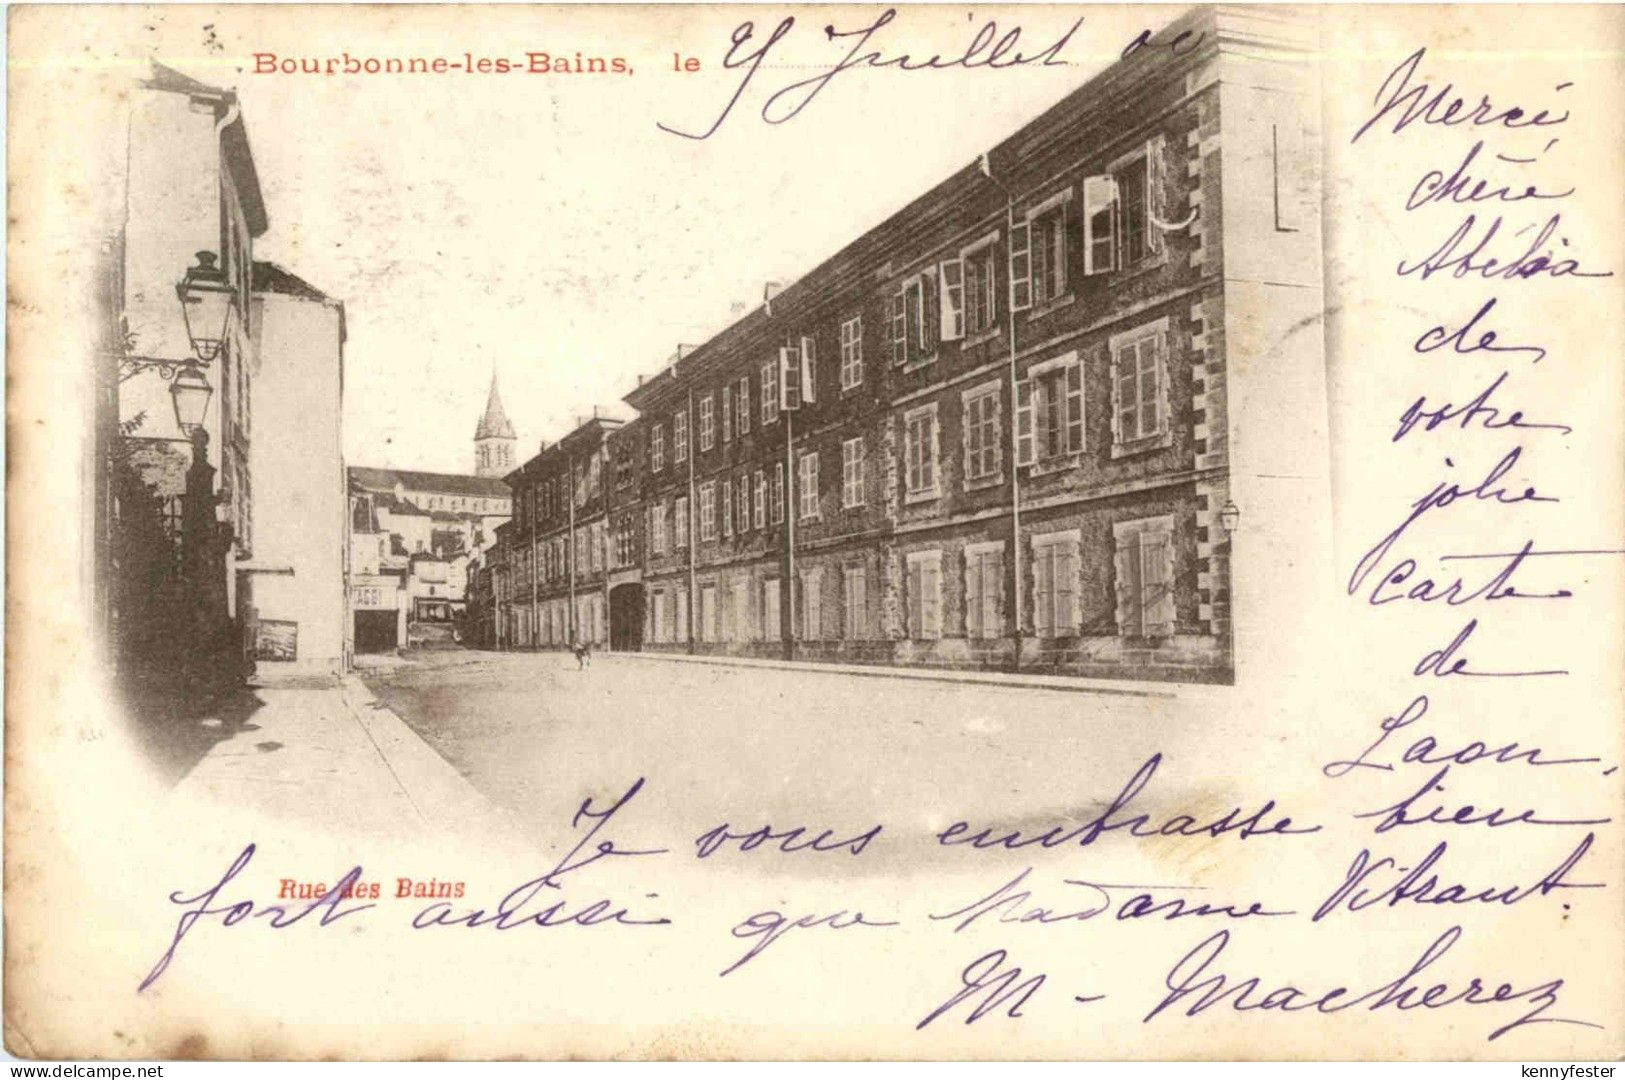 Bourbonne-les-Bains, le 9 Juillet 00
Merci
chère
Abélia
de
votre
jolie
carte
de
Laon.
Je vous embrasse bien
fort ainsi que Madame Vitrant.
M - Macherez
Rue des Bains
delcampe.net
kennyfester